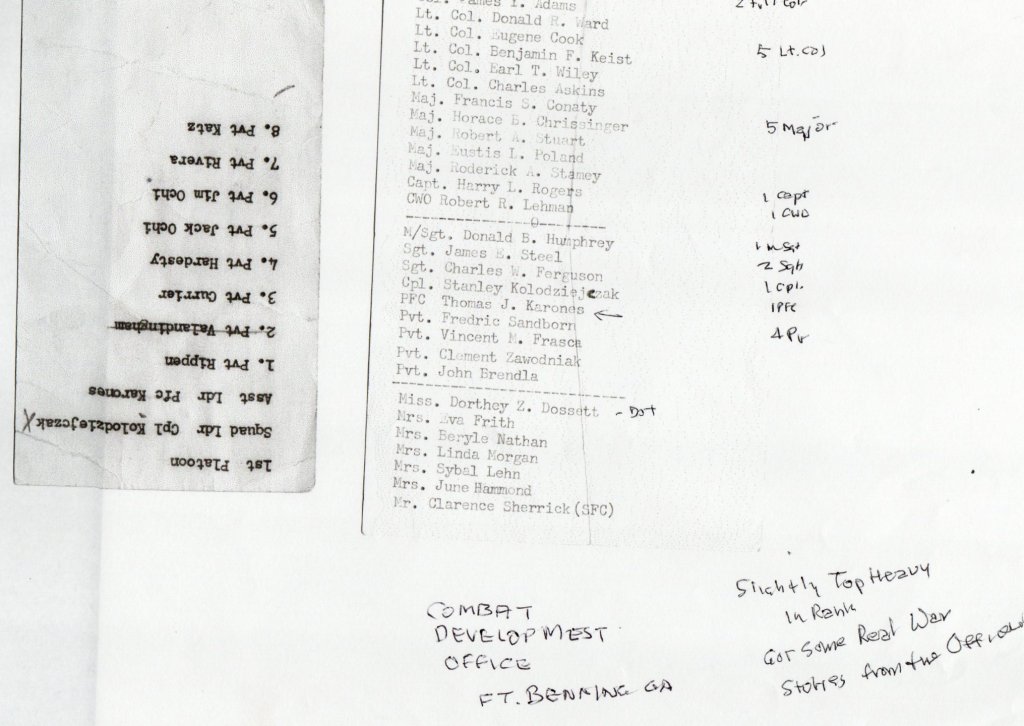 James T. Adams
Lt. Col. Donald R. Ward
Lt. Col. Eugene Cook
Lt. Col. Benjamin F. Keist
Lt. Col. Earl T. Wiley
Lt. Col. Charles Askins
Maj. Francis S. Conaty
Maj. Horace B. Chrissinger
Maj. Robert A. Stuart
Maj. Eustis L. Poland
Maj. Roderick A. Stamey
Capt. Harry L. Rogers
CWO Robert R. Lehman
M/Sgt. Donald B. Humphrey
Sgt. James E. Steel
Sgt. Charles W. Ferguson
Cpl. Stanley Kolodziejczak
PFC Thomas J. Karones
Pvt. Fredric Sandborn
Pvt. Vincent M. Frasca
Pvt. Clement Zawodniak
Pvt. John Brendla
Miss. Dorthey Z. Dossett - Dot
Mrs. Eva Frith
Mrs. Beryle Nathan
Mrs. Linda Morgan
Mrs. Sybal Lehn
Mrs. June Hammond
Mr. Clarence Sherrick (SFC)
2 full
5 Lt. Col
5 Major
1 Capt
1 CWO
1 M Sgt
2 Sgt
1 Cpl.
1 PFC
4 Pv
1st Platoon
Squad Ldr Cpl Kolodziejczak X
Asst Ldr Pfc Karones
1. Pvt Rippen
2. Pvt Valandingham
3. Pvt Currier
4. Pvt Hardesty
5. Pvt Jack Ochi
6. Pvt Jim Ochi
7. Pvt Rivera
8. Pvt Katz
COMBAT
DEVELOPMEST
OFFICE
FT. BENNING GA
Slightly Top Heavy
In Rank
Got Some Real War
Stories from the